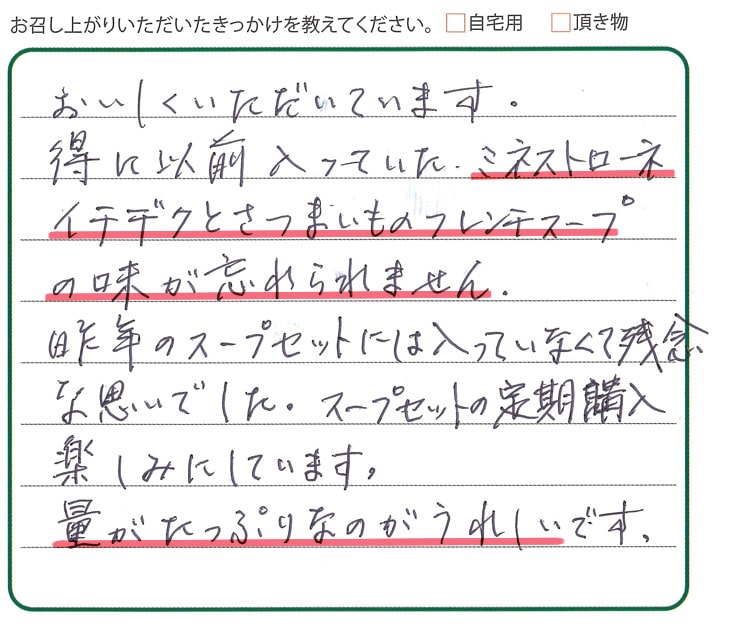 お召し上がりいただいたきっかけを教えてください。 □自宅用 □頂き物
おいしくいただいています。
得に以前入っていた.ミネストローネ
イチヂクとさつまいものフレンチスープ
の味が忘れられません.
昨年のスープセットには入っていなくて残念
な思いでした。スープセットの定期購入
楽しみにしています。
量がたっぷりなのがうれしいです。